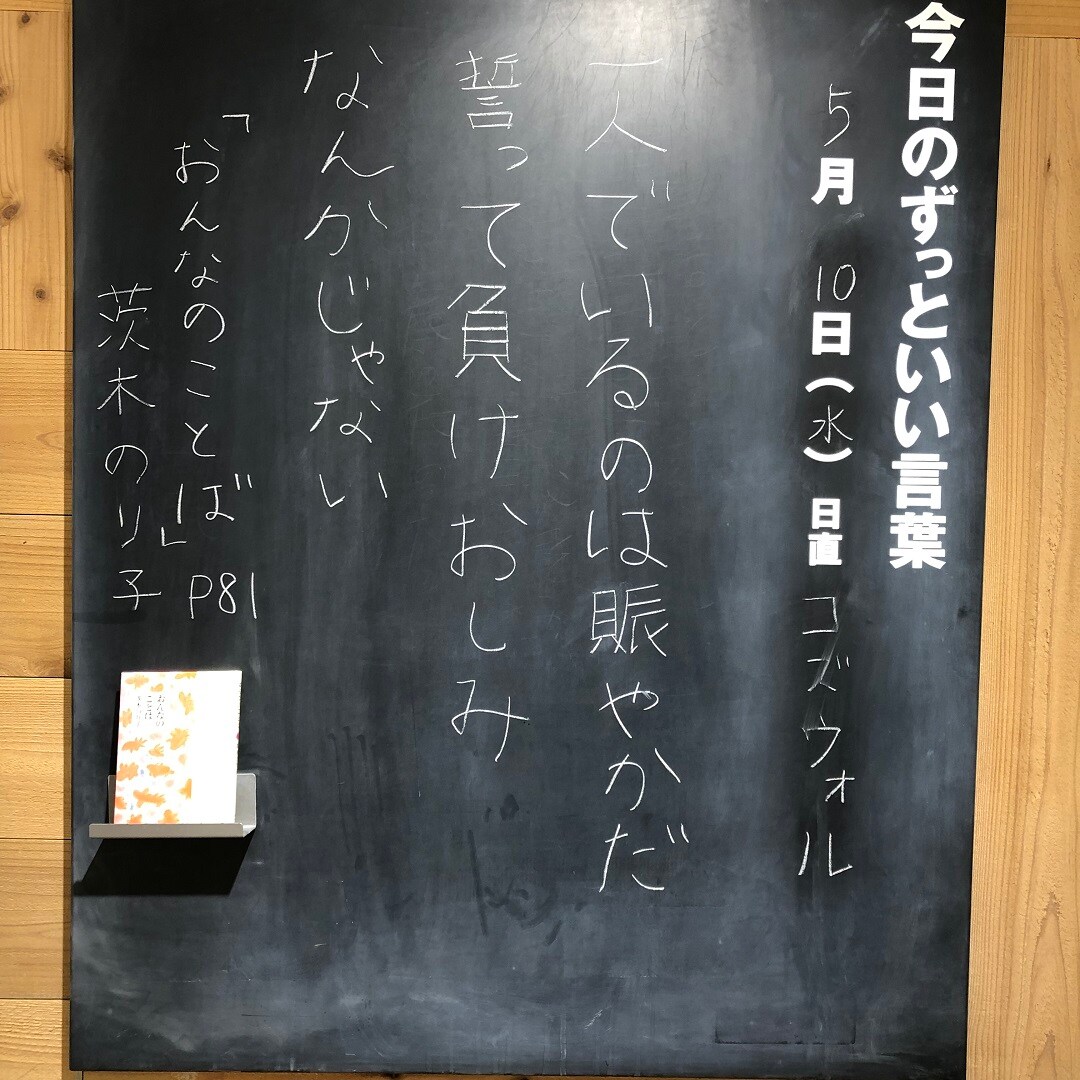 今日のずっといい言葉
5月10日(水) 日直 コズウォル
一人でいるのは賑やかだ
誓って負けおしみ
なんかじゃない
「おんなのことば」P81
茨木のり子
おんなの
ことば